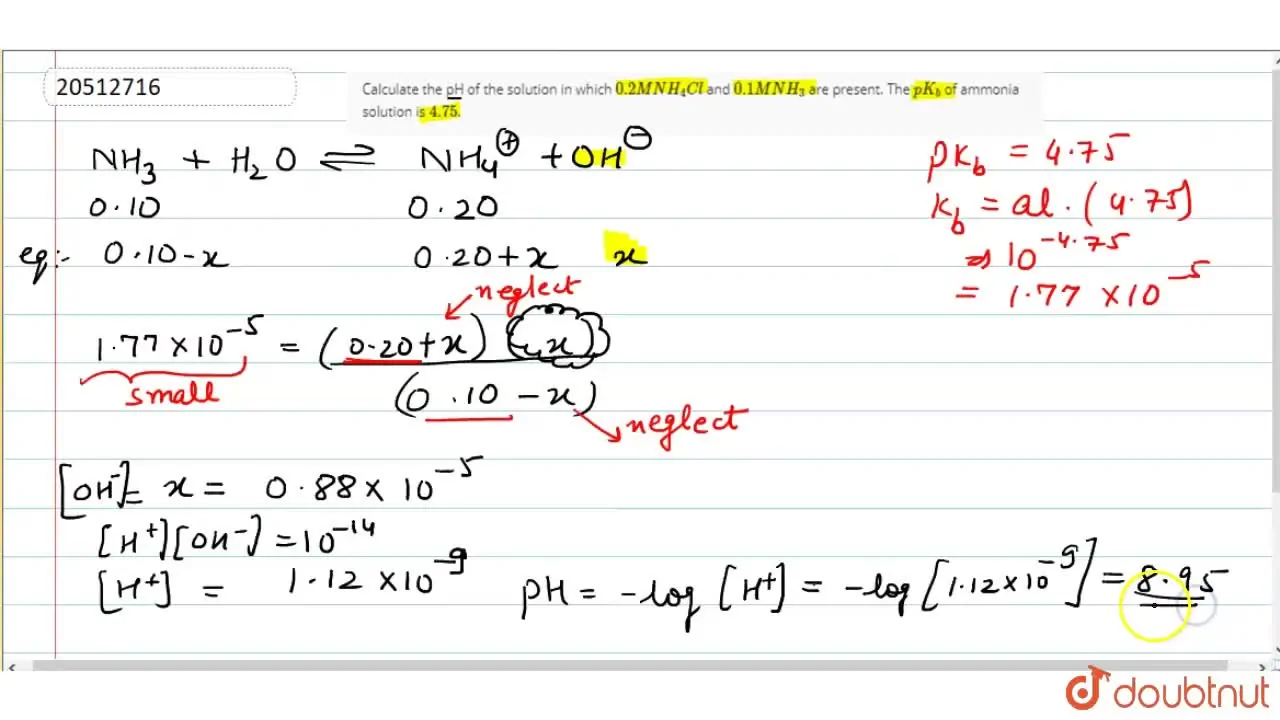 20512716
Calculate the pH of the solution in which 0.2M NH₄Cl and 0.1M NH₃ are present. The pK_b of ammonia
solution is 4.75.
NH₃ + H₂O ⇌ NH₄⊕ + OH⊖
0.10 0.20
eq:- 0.10-x 0.20+x x
neglect
pK_b = 4.75
K_b = al. (4.75)
⇒ 10^-4.75
= 1.77 × 10^-5
1.77 × 10^-5 = (0.20+x) (x)
(0.10 - x)
small
neglect
[OH⁻]= x = 0.88 × 10^-5
[H⁺][OH⁻] = 10^-14
[H⁺] = 1.12 × 10^-9
PH = -log [H⁺] = -log [1.12×10^-9] = 8.95
doubtnut